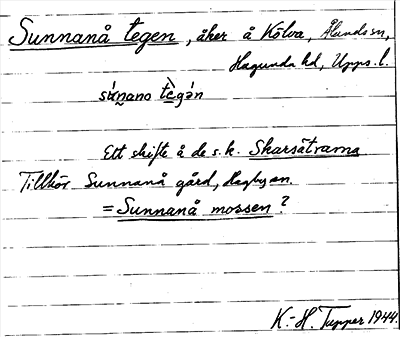 Sunnanå tegen, åker å Kölva, Ålunda sn,
Hagunda hd, Upps. l.
sú̀nano tègən
Ett skifte å de s.k. Skarsätrarna
Tillhör Sunnanå gård, Hagby sn.
= Sunnanå mossen?
K.-H. Tupper 1944.